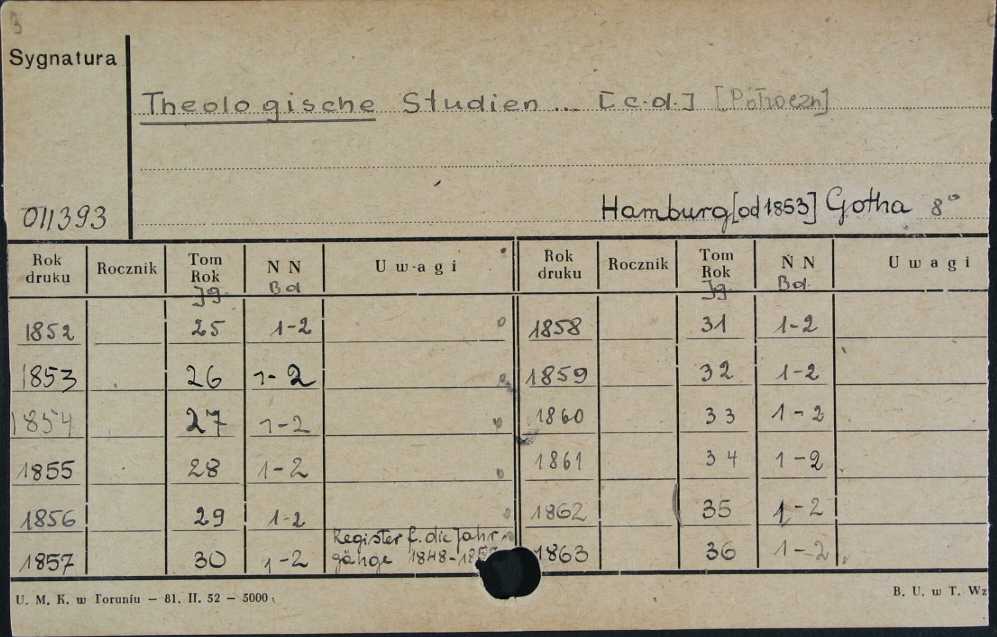 Sygnatura
Theologische Studien ... [c.d.] [Półroczn]
011393
Hamburg [od 1853] Gotha 8°
Rok druku Rocznik Tom Rok Jg. N N Bd. U w a g i Rok druku Rocznik Tom Rok Jg. N N Bd. U w a g i
1852 25 1-2 1858 31 1-2
1853 26 1-2 1859 32 1-2
1854 27 1-2 1860 33 1-2
1855 28 1-2 1861 34 1-2
1856 29 1-2 1862 35 1-2
Register f. die Jahr-
1857 30 1-2 gänge 1848- 1863 36 1-2
U. M. K. w Toruniu – 81. II. 52 – 5000
B. U. w T. Wz